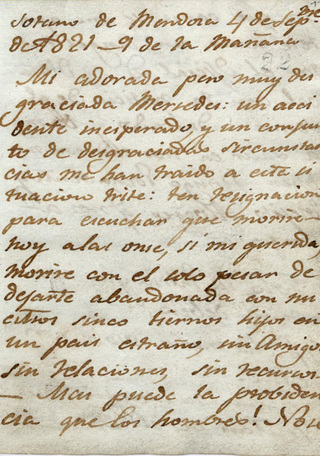 Sotano de Mendoza 4 de Sepbre
de 1821 — 9 de la Mañana
22
Mi adorada pero muy des
graciada Mersedes: un acci
dente inesperado, y un conjun
to de desgraciadas sircunstan
cias me han traido a esta si
tuacion triste: ten resignacion
para escuchar que morire
hoy a las onse, si mi querida,
morire con el solo pesar de
dejarte abandonada con nu
estros sinco tiernos hijos en
un pais estraño, sin Amigos
sin relaciones, sin recursos
— Mas puede la probiden
cia que los hombres! No